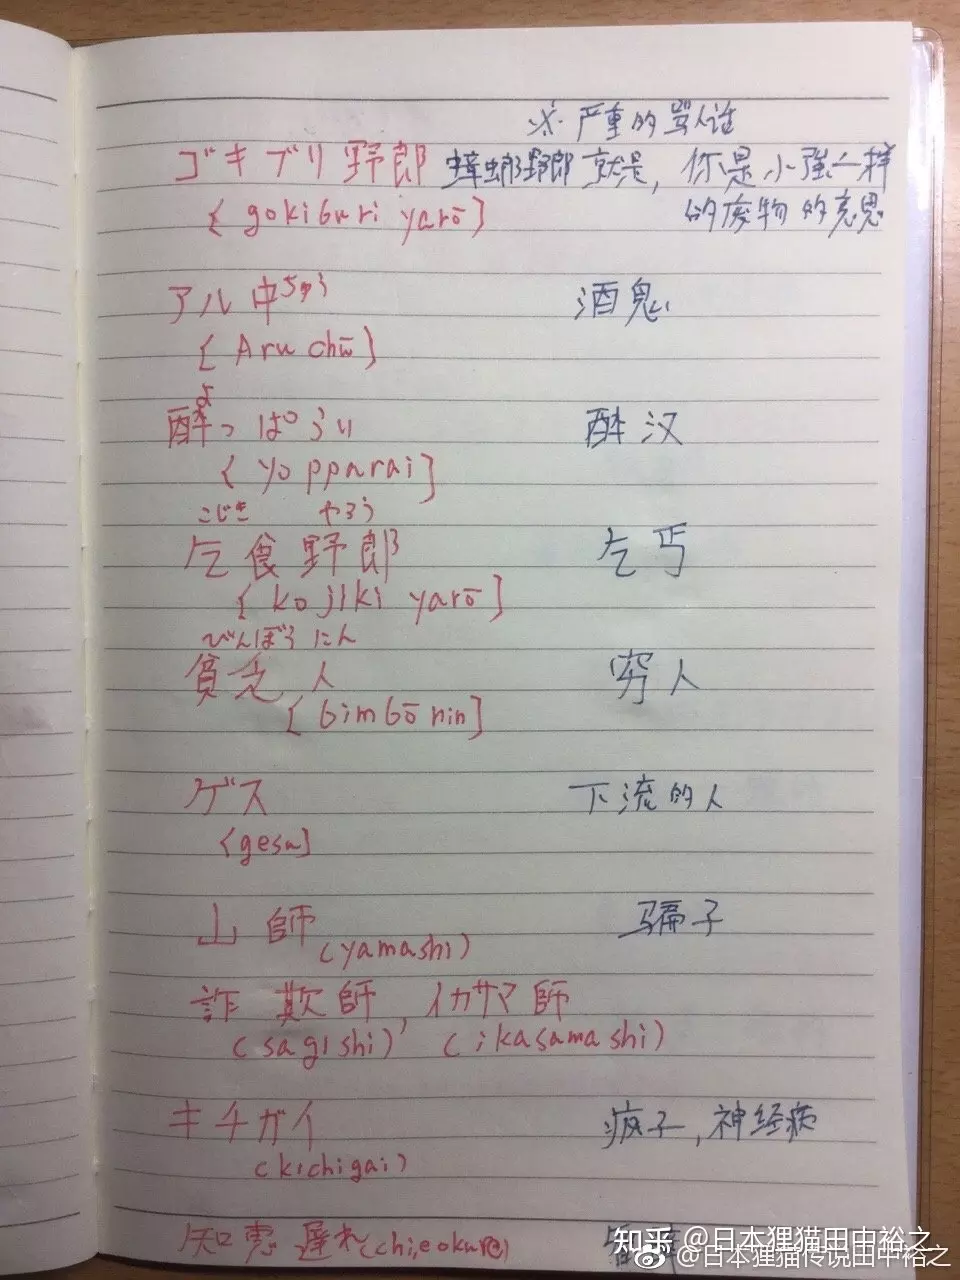 ※严重的骂人话
ゴキブリ野郎 蟑螂野郎 就是，你是小強一样
[gokiburi yarō] 的废物的意思
アル中ちゅう 酒鬼
[Aru chū]
よ
酔っぱらい 醉汉
[yopparai]
こじき やろう
乞食野郎 乞丐
[kojiki yarō]
びんぼうにん
貧乏人 穷人
[bimbō nin]
ゲス 下流的人
[gesu]
山師 骗子
(yamashi)
詐欺師，イカサマ師
(sagishi) (ikasamashi)
キチガイ 疯子，神经病
(kichigai)
知恵遅れ(chieokure)
知乎 @日本狸猫田中裕之
@日本狸猫传说田中裕之